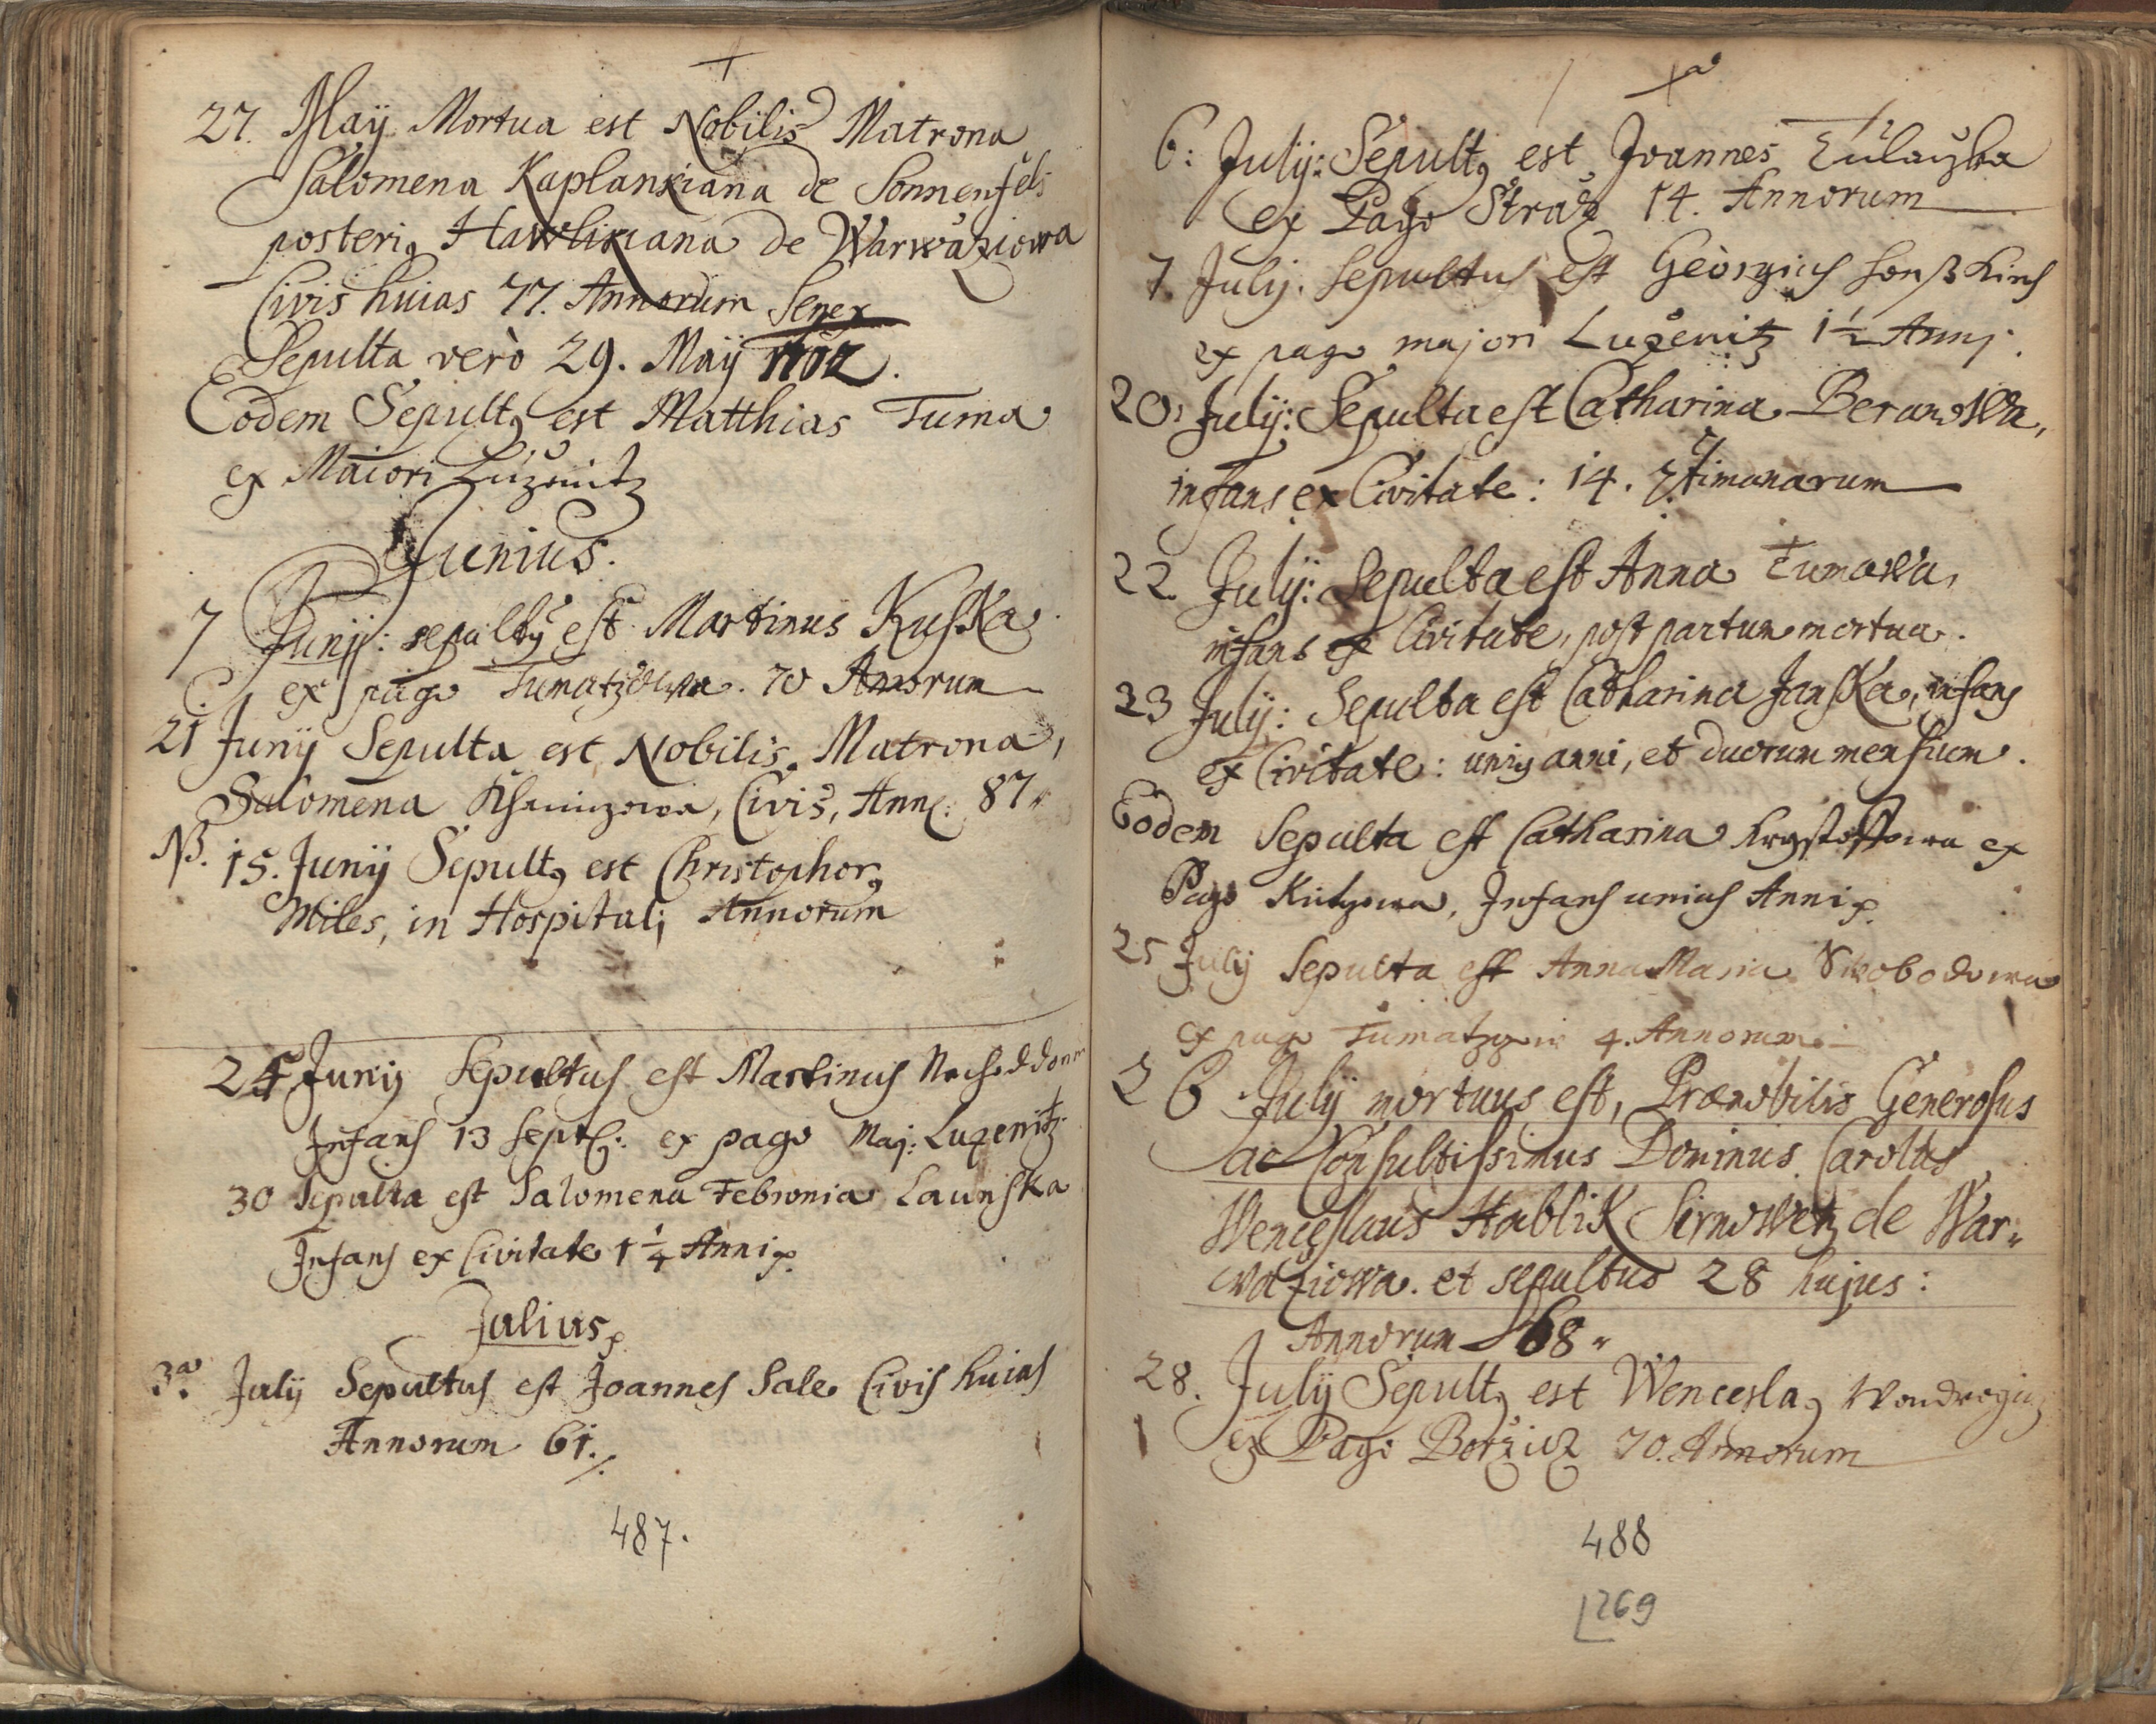 27. Maÿ Mortua est Nobilis Matrona
Salomena Kaplankiana de Sonnenfels
posteriꝰ Hawlikiana de Warwažiowa
Civis huias 77. Annorum Senex
Sepulta verò 29. Maÿ
Eodem Sepultꝰ est Matthias Tuma
ex Maiori Luženitz
Junius.
7 Junij: sepultꝰ est Martinus Kuska
ex pago 70 Annorum
21 Junÿ Sepulta est Nobilis Matrona,
Salomena Civis, Ann: 87
NB. 15. Junÿ Sepultꝰ est Christophorꝰ
Miles, in Hospitali Annorum
Junij Sepultus est Martinus
Infans 13 Sept: ex pago Maj: Luzenitz
30 Sepulta est Salomena Febronia Launska
Infans ex Civitate 1 1/4 Anni
Julius
3a. Julÿ Sepultus est Joannes Sale Civis huias
Annorum 61.
487.
6: Julÿ: Sepultꝰ est Joannes
ex Pago Straž 14. Annorum
7. Julÿ: Sepultus est Geòrgius
ex pago majori Luženitz 1 1/2 Anni.
20. Julÿ: Sepulta est Catharina Beranowa,
infans ex Civitate: 14. 7timanarum
22 Julÿ: Sepulta est Anna Tumowa,
infans ex Civitate, post partum mortua.
23 Julÿ: Sepulta est Catharina Janska, infans
ex Civitate: uniꝰ anni, et duorum mensium.
Eodem Sepulta est Catharina Krystoffowa ex
Pago Infans unius Anni
25 Julÿ Sepulta est Anna Maria Swobodowa
ex pago 4. Annorum
26 Julÿ mortuus est, Prænobilis Generosus
ac Consultissimus Dominus Carolus
Wenceslaus Hablik Sirnowetz de War„
važiowa. et sepultus 28 hujus:
Annorum 68„
28. Julÿ Sepultꝰ est Wenceslaꝰ
ex Pago Boržicz 70. Annorum
488
269